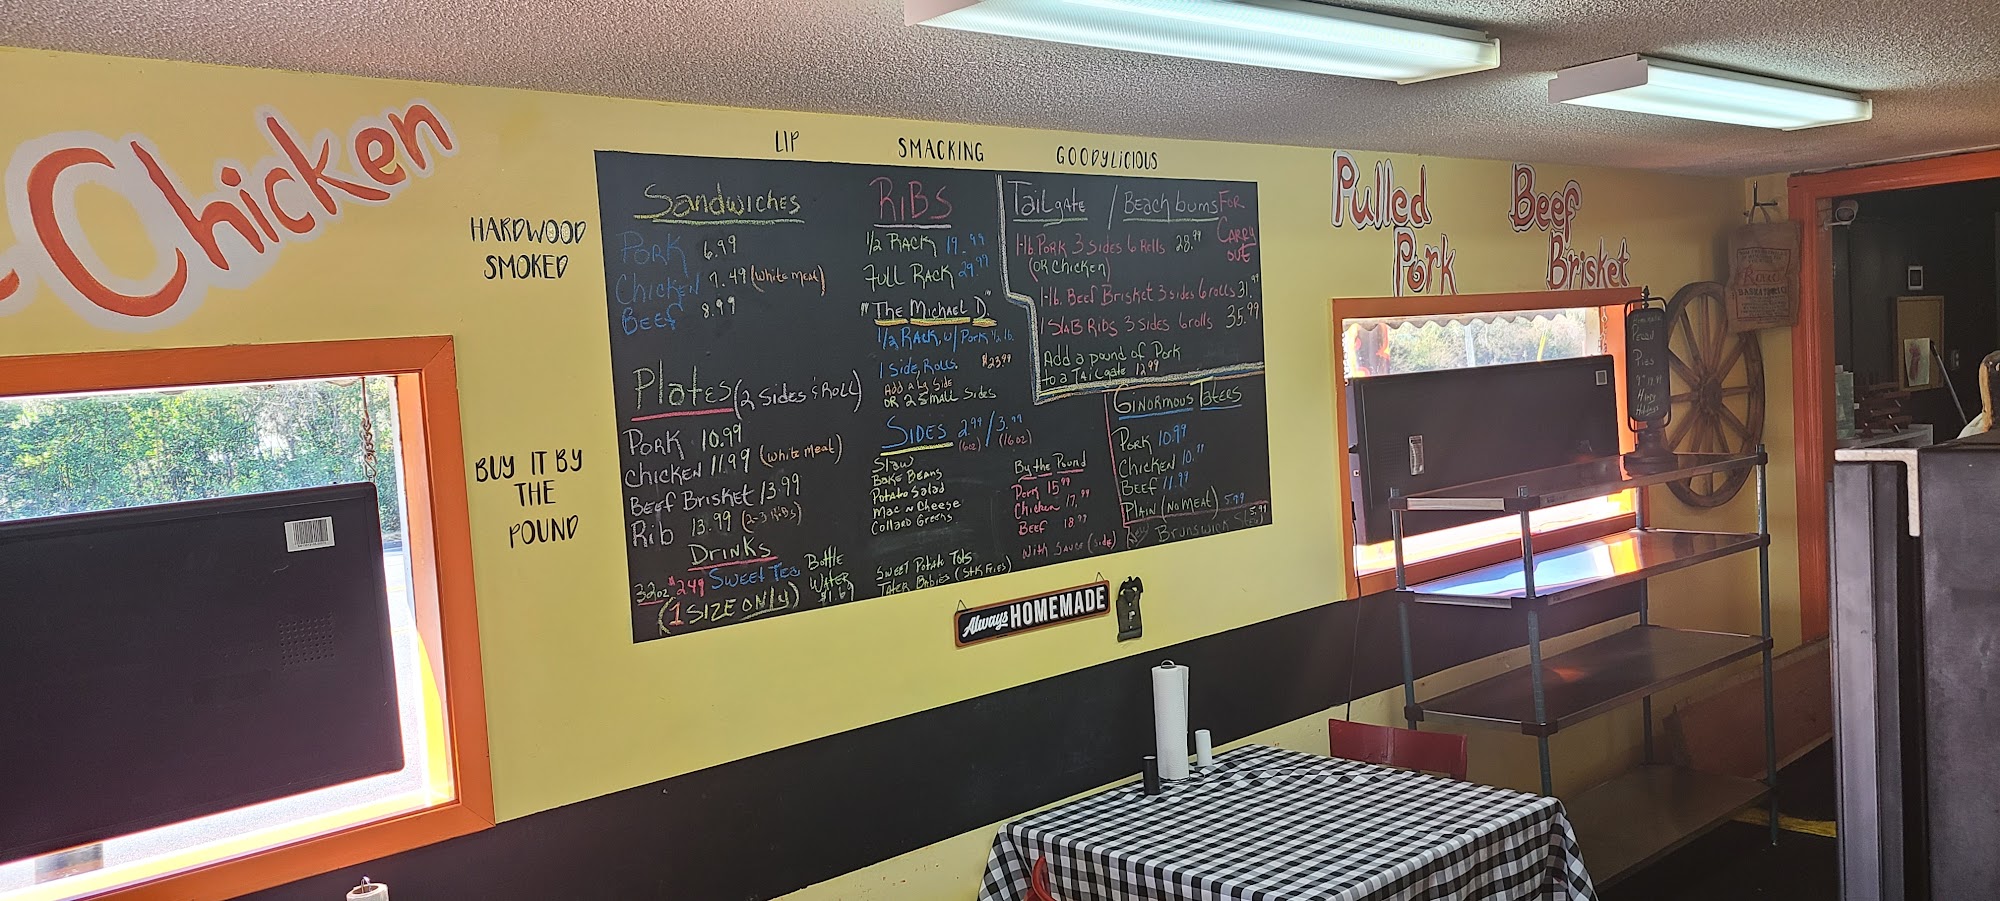 Chicken
LIP SMACKING GOODYLICIOUS
HARDWOOD
SMOKED
BUY IT BY
THE
POUND
Sandwiches
PORK 6.99
Chicken 7.49 (white meat)
BEEF 8.99
Plates (2 Sides & Roll)
PORK 10.99
Chicken 11.99 (white meat)
BEEF BRISKET 13.99
Rib 13.99 (2-3 Ribs)
Drinks
32oz $2.49 Sweet Tea
(1 SIZE ONLY)
Bottle
Water
$1.69
RiBS
1/2 RACK 19.99
Full Rack 29.99
"The Michael D."
1/2 Rack w/ Pork 1/2 lb.
1 Side, Rolls. $23.99
Add a Lg Side
OR 2 Small Sides
SIDES 2.99 / 3.99
(6oz) (16oz)
Slaw
Bake Beans
Potato Salad
Mac n Cheese
Collard Greens
Sweet Potato Tots
Tater Babies (Stk Fries)
By the Pound
Pork 15.99
Chicken 17.99
Beef 18.99
With Sauce (Side)
Tailgate / Beachbums FOR
CARRY
OUT
1-lb Pork 3 Sides 6 Rolls 28.99
(OR Chicken)
1-lb. Beef Brisket 3 sides 6 rolls 31.99
1 Slab Ribs 3 Sides 6 rolls 35.99
Add a pound of Pork
to a Tailgate 12.99
Ginormous Taters
Pork 10.99
Chicken 10.99
Beef 11.99
Plain (No Meat) 5.99
Brunswick Stew 5.99
Always HOMEMADE
Pulled
Pork
Beef
Brisket